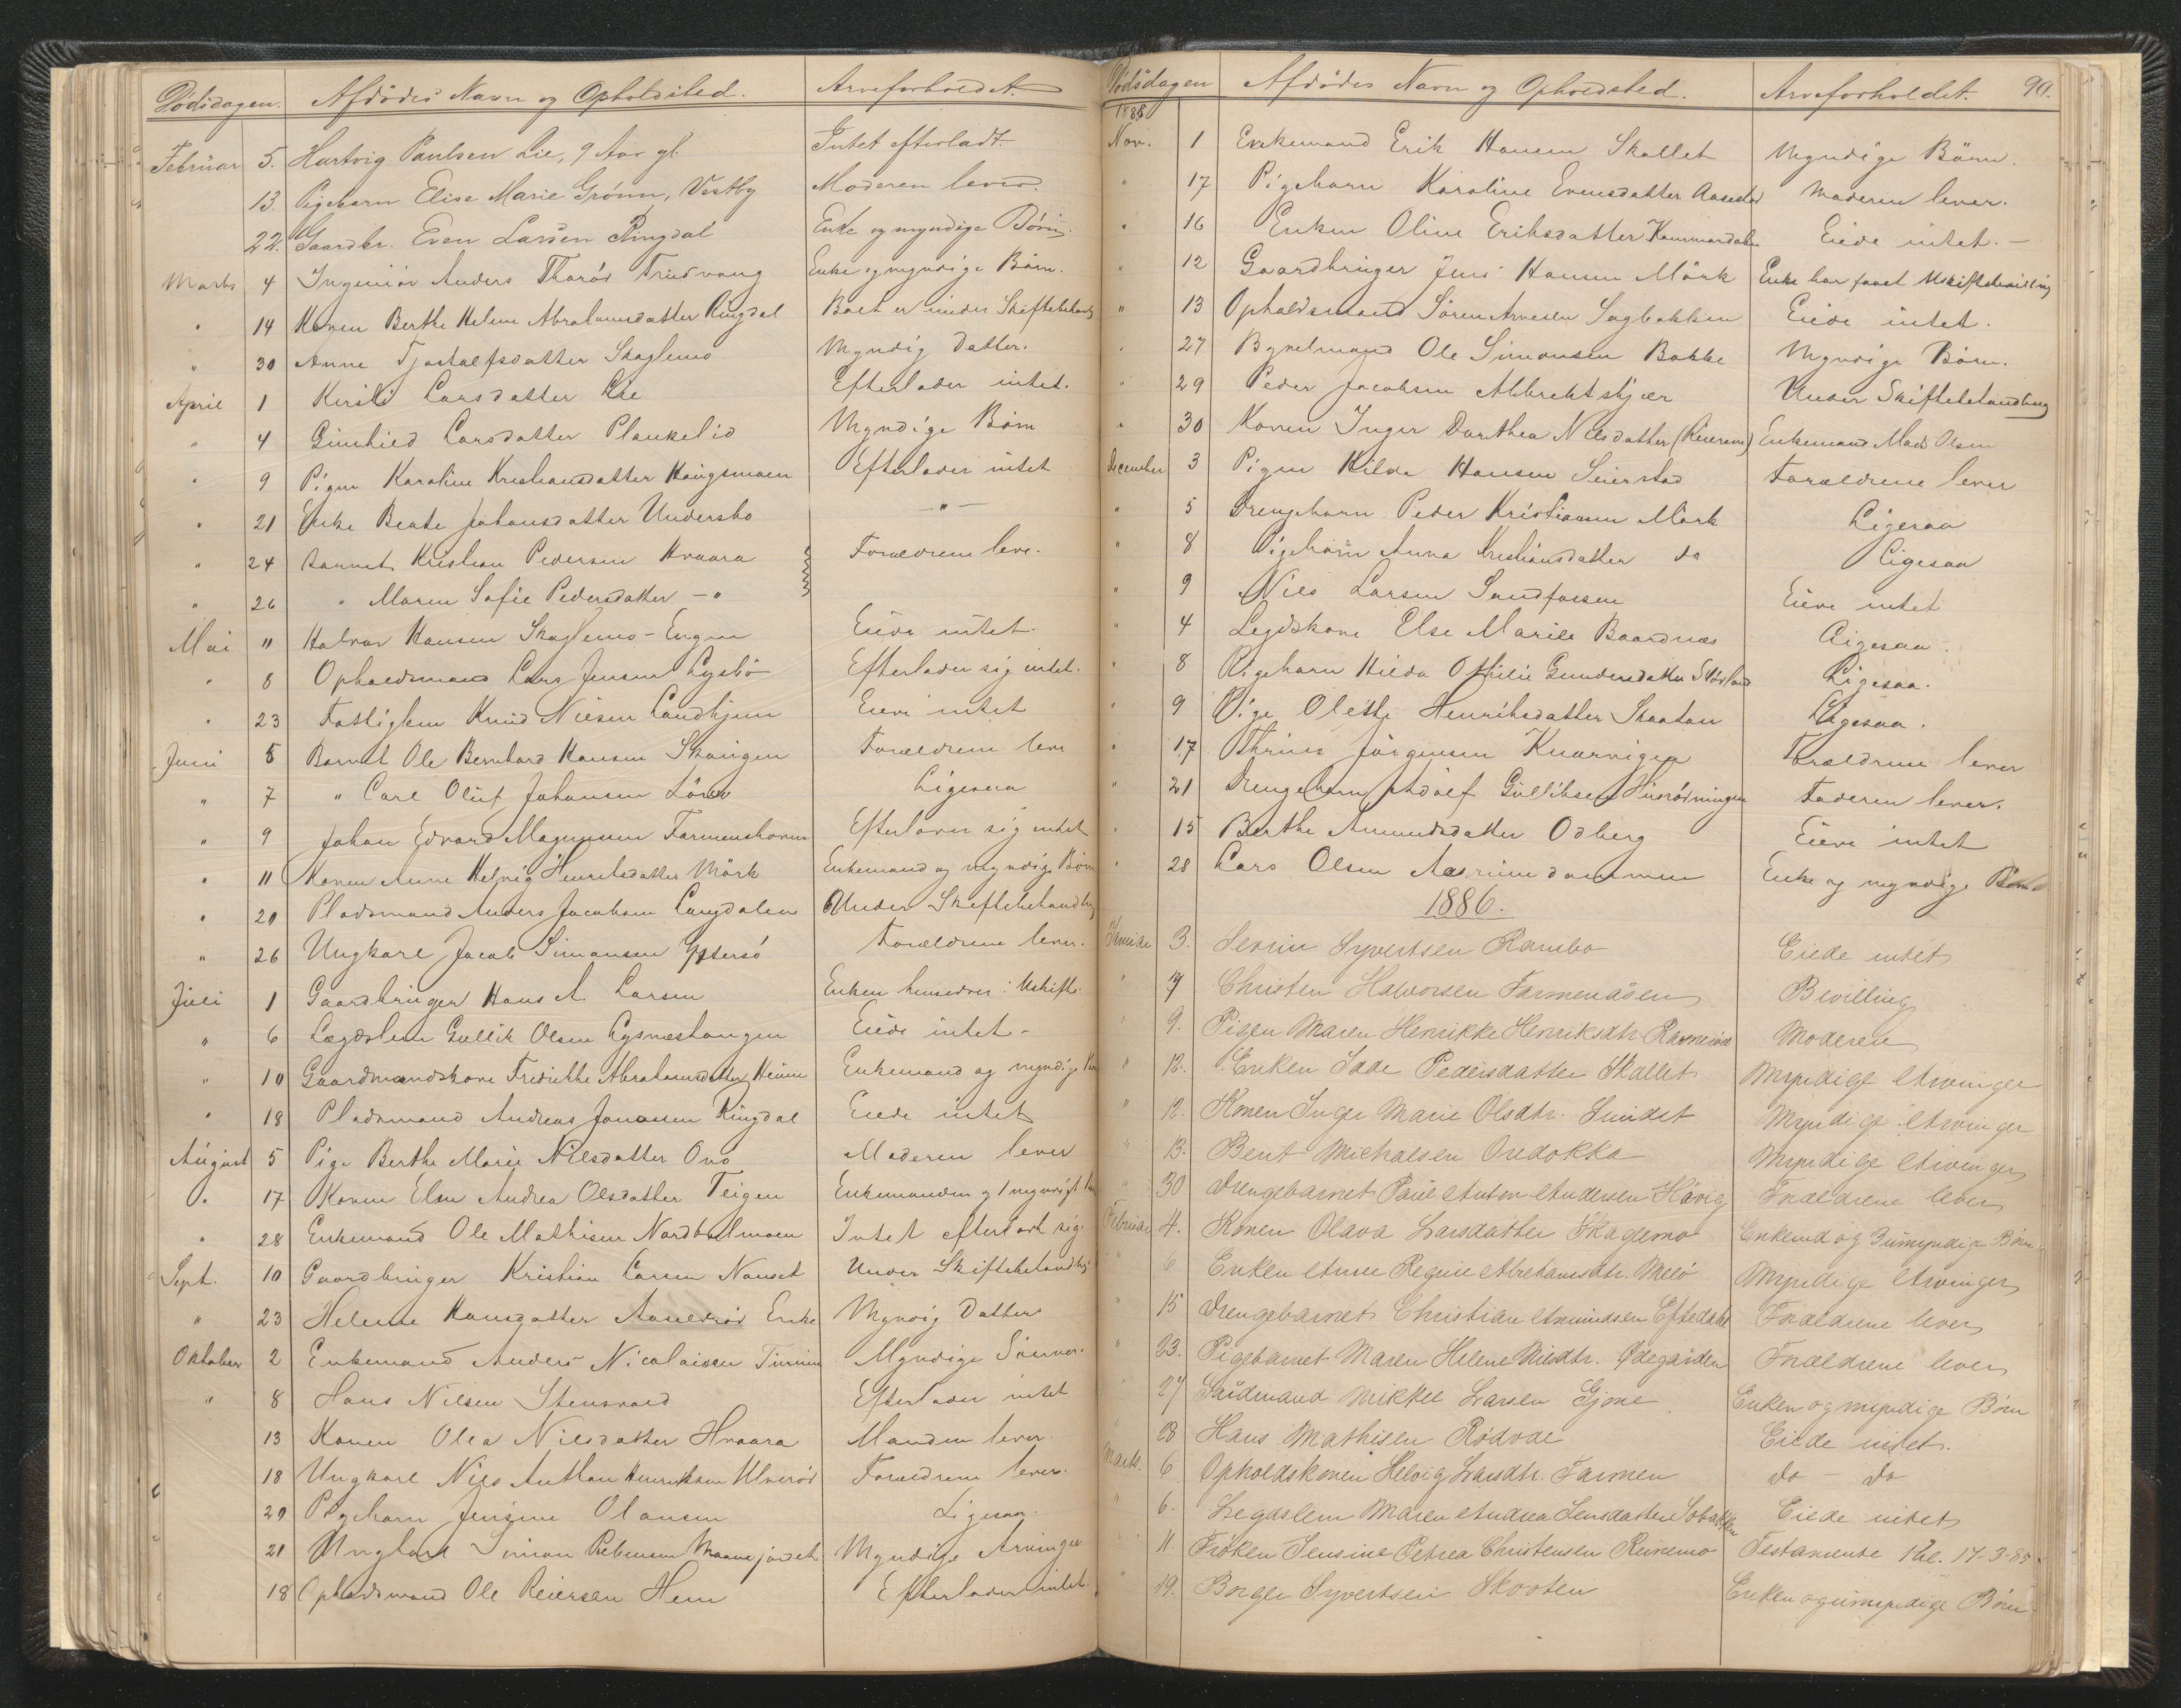 Dödsdagen. Afdödes Navn og Opholdsted. Arveforholdet.
Februar 5. Hartvig Paulsen Lie, 9 Aar gl. Intet efterladt.
" 13. Pigebarn Elise Marie Grönn, Vestby Moderen lever.
22. Gaardbr. Even Larsen Ringdal Enke og myndige Börn.
Marts 4 Ingeniör Anders Thoröd Fredvang Enke og myndige Börn.
" 14 Konen Berthe Helene Abrahamsdatter Ringdal Boet er under Skiftebehandl
" 30 Anne Tjostolfsdatter Skaglemo Myndig Datter.
April 1 Kirsti Larsdatter Lie Efterlader intet.
" 4 Gunhild Larsdatter Plankelid Myndige Börn
" 9 Pigen Karoline Kristiansdatter Haugsmoen Efterlader intet
" 21 Enke Beate Johansdatter Undersbo — " —
" 24 Barnet Kristian Pedersen Kvaara Forældrene leve.
" 26 " Maren Sofie Pedersdatter — "
Mai 11 Halvor Hansen Skaglemo-Engen Eiede intet.
" 8 Opholdsmand Lars Jensen Lysbö Efterlader sig intet.
" 23 Fattiglem Knud Nilsen Landhjem Eiede intet
Juni 5 Barnet Ole Bernhard Hansen Skaugen Forældrene leve
" 7 " Carl Oluf Johansen Ligesaa
" 9 Johan Edvard Magnussen Farmenskoven Efterlader sig intet
" 11 Konen Anne Helvig Henriksdatter Mörk Enkemand og myndige Börn
" 20 Pladsmand Anders Jacobsen Langdalen Under Skiftebehandling
" 26 Ungkarl Jacob Simonsen Yttersö Forældrene lever.
Juli 1 Gaardbruger Hans A. Larsen Enken hensidder i Uskifte
" 6 Lægdslem Gullik Olsen Lysnestangen Eiede intet -
" 10 Gaardmandskone Fredrikke Abrahamsdatter Heum Enkemand og myndige
" 18 Pladsmand Andreas Jonassen Ringdal Eiede intet
August 5 Pige Berthe Marie Nilsdatter Ono Moderen lever
" 17 Konen Elen Andrea Olsdatter Teigen Enkemanden og 1 myndigt
" 28 Enkemand Ole Mathisen Nordholmoen Intet efterladt sig.
Sept. 10 Gaardbruger Kristian Larsen Nanset Under Skiftebehandling
" 23 Helene Hansdatter Enke Myndig Datter
Oktober 2 Enkemand Anders Nicolaisen Myndige Sönner.
" 8 Hans Nilsen Stensvold Efterlader intet
13 Konen Olea Nilsdatter Hvaara Manden lever.
18 Ungkarl Nils Anthon Henriksen Ulveröd Forældrene lever.
20 Pigebarn Jensine Olausen Ligesaa.
21 Ungkarl Simon Myndige Arvinger
18 Opholdsmand Ole Reiersen Hem Efterlader intet.
Dödsdagen Afdödes Navn og Opholdsted. Arveforholdet. 90.
1885
Nov. 1 Enkemand Erik Hansen Skallet Myndige Börn.
" 17 Pigebarn Karoline Evensdatter Aasestad Moderen lever.
" 16 Enken Oline Eriksdatter Kammerdalen Eiede intet. —
" 12 Gaardbruger Jens Hansen Mörk Enke har faaet Uskiftebevilling
" 13 Opholdsmand Sören Arvesen Sagbakken Eiede intet.
" 27 Bynelmand Ole Simonsen Bakke Myndige Börn.
" 29 Peder Jacobsen Albrektskjær Under Skiftebehandling
" 30 Konen Inger Dorthea Nilsdatter Enkemand Mads Olsen
December 3 Pigen Hilda Hansen Seierstad Forældrene lever
" 5 Drengebarn Peder Kristiansen Mörk Ligesaa
" 8 Pigebarn Anna Kristiansdatter do Ligesaa
" 9 Nils Larsen Sandfossen Eiede intet
" 4 Legdskone Else Marie Baardnæs Ligesaa.
" 8 Pigebarn Hilda Othilie Gundersdatter Ligesaa.
" 9 Pige Olette Henriksdatter Skaatan Ligesaa.
" 17 Thrine Jörgensen Knarvigen Forældrene lever
" 21 Drengebarn Adolf Gulliksen Faderen lever.
" 15 Berthe Amundsdatter Odberg Eiede intet
" 28 Lars Olsen Aasrumdammen Enke og myndige Börn
1886.
Januar 3. Severin Syvertsen Rambo Eiede intet
" 7 Christen Halvorsen Farmenåsen Bevilling
" 9. Pigen Maren Henrikke Henriksdtr. Ramneröd Moderen
" 12. Enken Pedersdatter Skallet Myndige Arvinger
" 12. Konen Inger Marie Olsdtr. Sundet Myndige Arvinger
" 13. Bent Michalsen Oredokka Myndige Arvinger
" 30 Drengebarnet Paul Anton Andersen Håvig Forældrene lever
Februar 4. Konen Olava Larsdatter Skaglemo Enkemd og 3 umyndige Börn
" 6 Enken Anne Regine Abrahamsdtr. Melö Myndige Arvinger
" 15 Drengebarnet Christian Amundsen Eftedahl Forældrene lever
" 23. Pigebarnet Maren Helene Nilsdtr. Ödegården Forældrene lever
" 27 Gårdmand Mikkel Larsen Gjone Enken og myndige Börn
" 28 Hans Mathisen Rödvoe Eiede intet.
Marts. 6 Opholdskonen Helvig Larsdtr. Farmen do — do
" 6. Legdslem Maren Andrea Jensdatter Eiede intet
" 11. Fröken Jensine Petrea Christensen Reinemo Testamente 17-3-85
" 19. Borger Syvertsen Skooten Enken og umyndige Börn